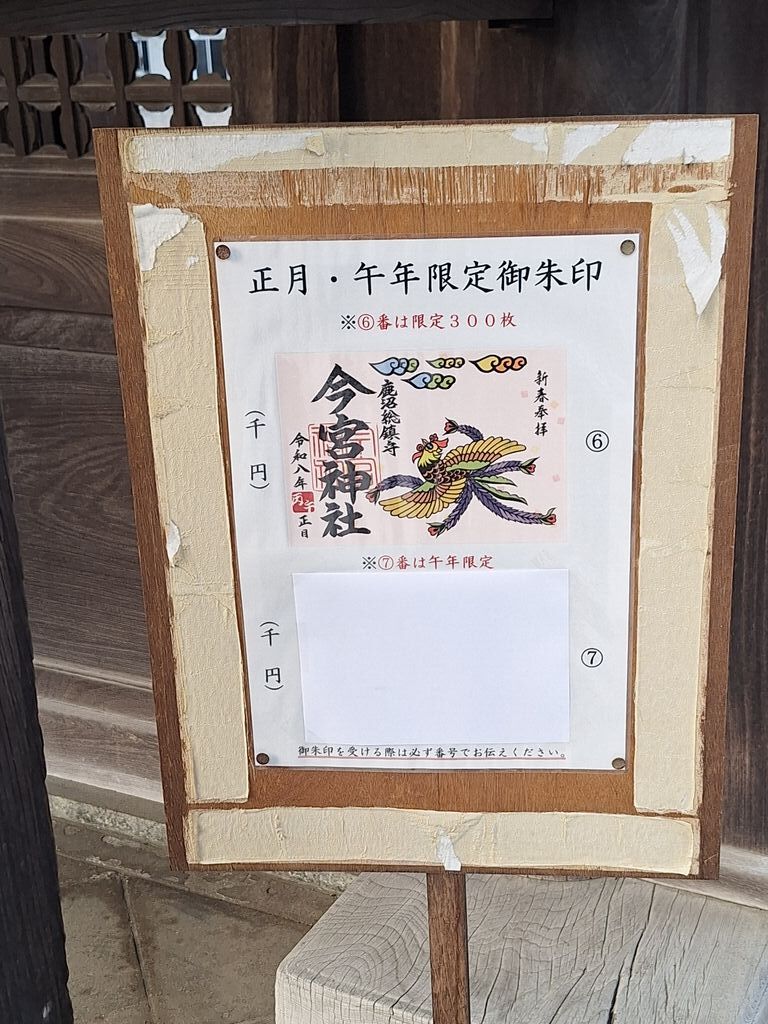 正月・午年限定御朱印
※⑥番は限定３００枚
新春奉拝
鹿沼総鎮守
今宮神社
令和八年
丙午
正月
（千円）
⑥
※⑦番は午年限定
（千円）
⑦
御朱印を受ける際は必ず番号でお伝えください。